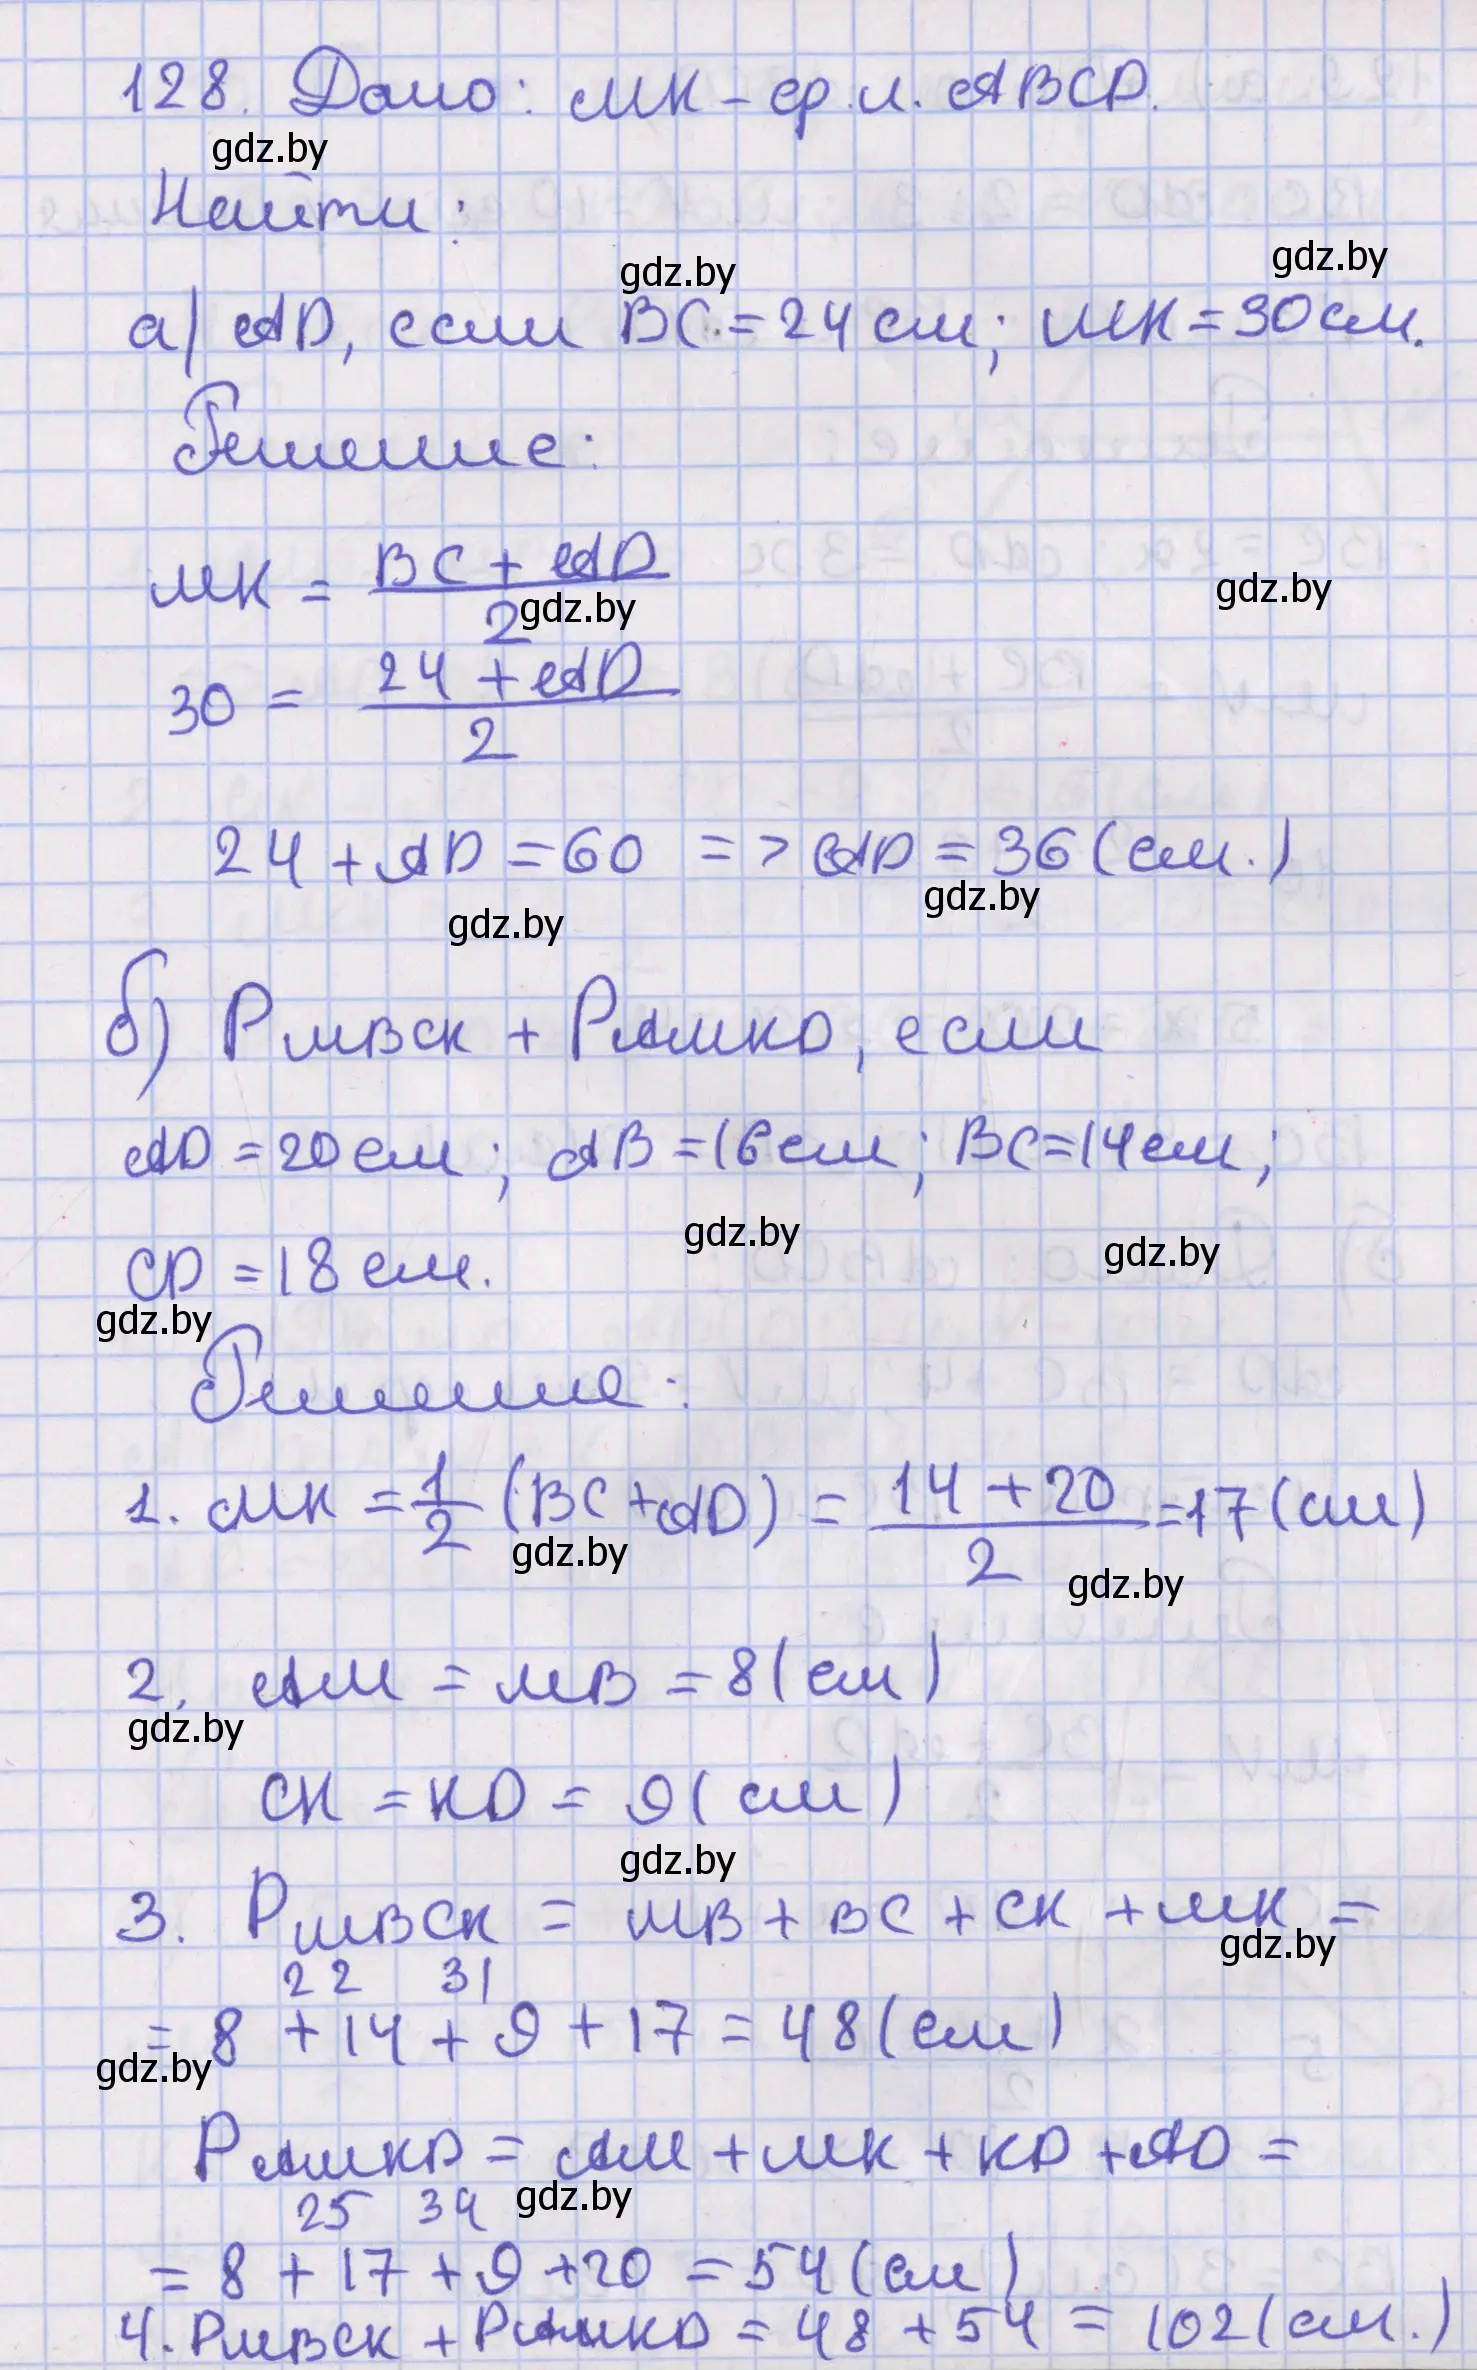 128. Дано: MK – ср. л. ABCD.
gdz.by
Найти:
gdz.by gdz.by
а) AD, если BC = 24 см; MK = 30 см.
Решение:
MK = (BC + AD)/2
gdz.by gdz.by
30 = (24 + AD)/2
24 + AD = 60 => AD = 36 (см.)
gdz.by gdz.by
б) PMBCK + PAMKD, если
AD = 20 см; AB = 16 см; BC = 14 см;
gdz.by gdz.by
CD = 18 см.
gdz.by
Решение:
1. MK = 1/2 (BC + AD) = (14 + 20)/2 = 17 (см)
gdz.by gdz.by
2. AM = MB = 8 (см)
gdz.by
CK = KD = 9 (см)
gdz.by
3. PMBCK = MB + BC + CK + MK =
gdz.by
22 31
= 8 + 14 + 9 + 17 = 48 (см)
gdz.by
PAMKD = AM + MK + KD + AD =
25 34 gdz.by
= 8 + 17 + 9 + 20 = 54 (см)
4. PMBCK + PAMKD = 48 + 54 = 102 (см.)